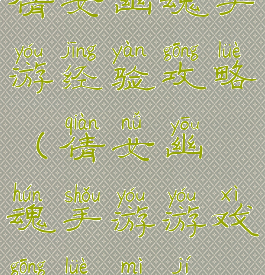 倩女幽魂手
yóu jīng yàn gōng lüè
游经验攻略
qiàn nǚ yōu
(倩女幽
hún shǒu yóu yóu xì
魂手游游戏
gōng lüè mì jí